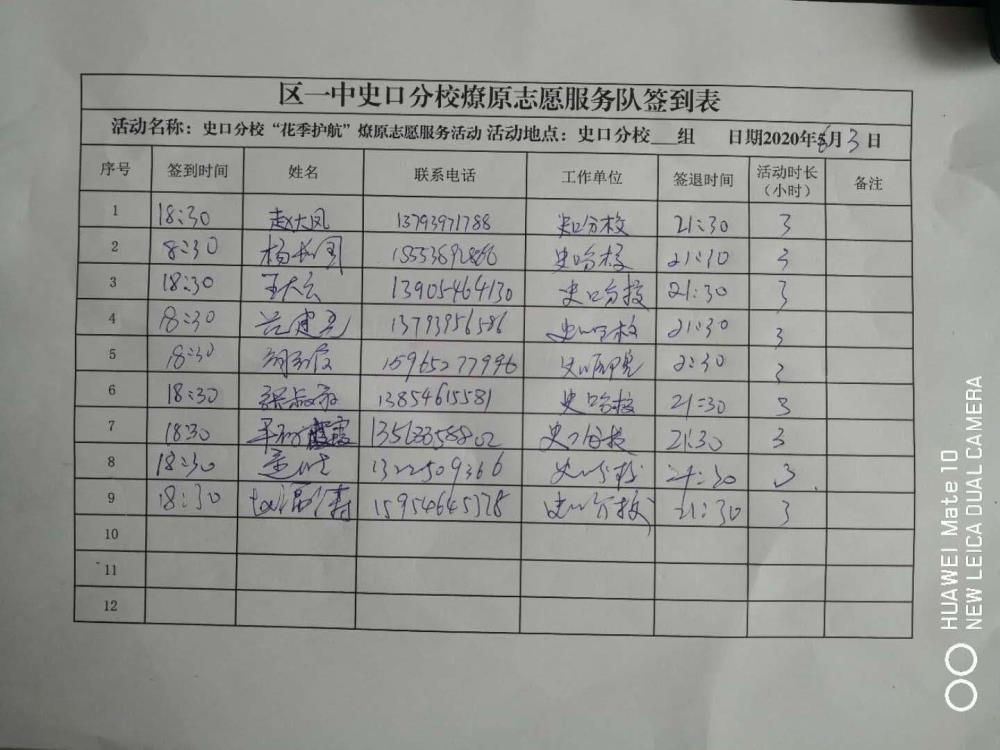 区一中史口分校燎原志愿服务队签到表
活动名称：史口分校“花季护航”燎原志愿服务活动 活动地点：史口分校___组 日期2020年 月3日
序号 签到时间 姓名 联系电话 工作单位 签退时间 活动时长（小时） 备注
1 18:30 赵大凤 13793971788 史口分校 21:30 3
2 8:30 史口分校 21:30 3
3 18:30 13905464130 史口分校 21:30 3
4 8:30 13793956586 史口分校 21:30 3
5 8:30 15965277996 2:30 3
6 18:30 13854615581 史口分校 21:30 3
7 18:30 史口分校 21:30 3
8 18:30 1322509366 史口分校 21:30 3
9 18:30 15954645378 史口分校 21:30 3
10
11
12
HUAWEI Mate 10
NEW LEICA DUAL CAMERA